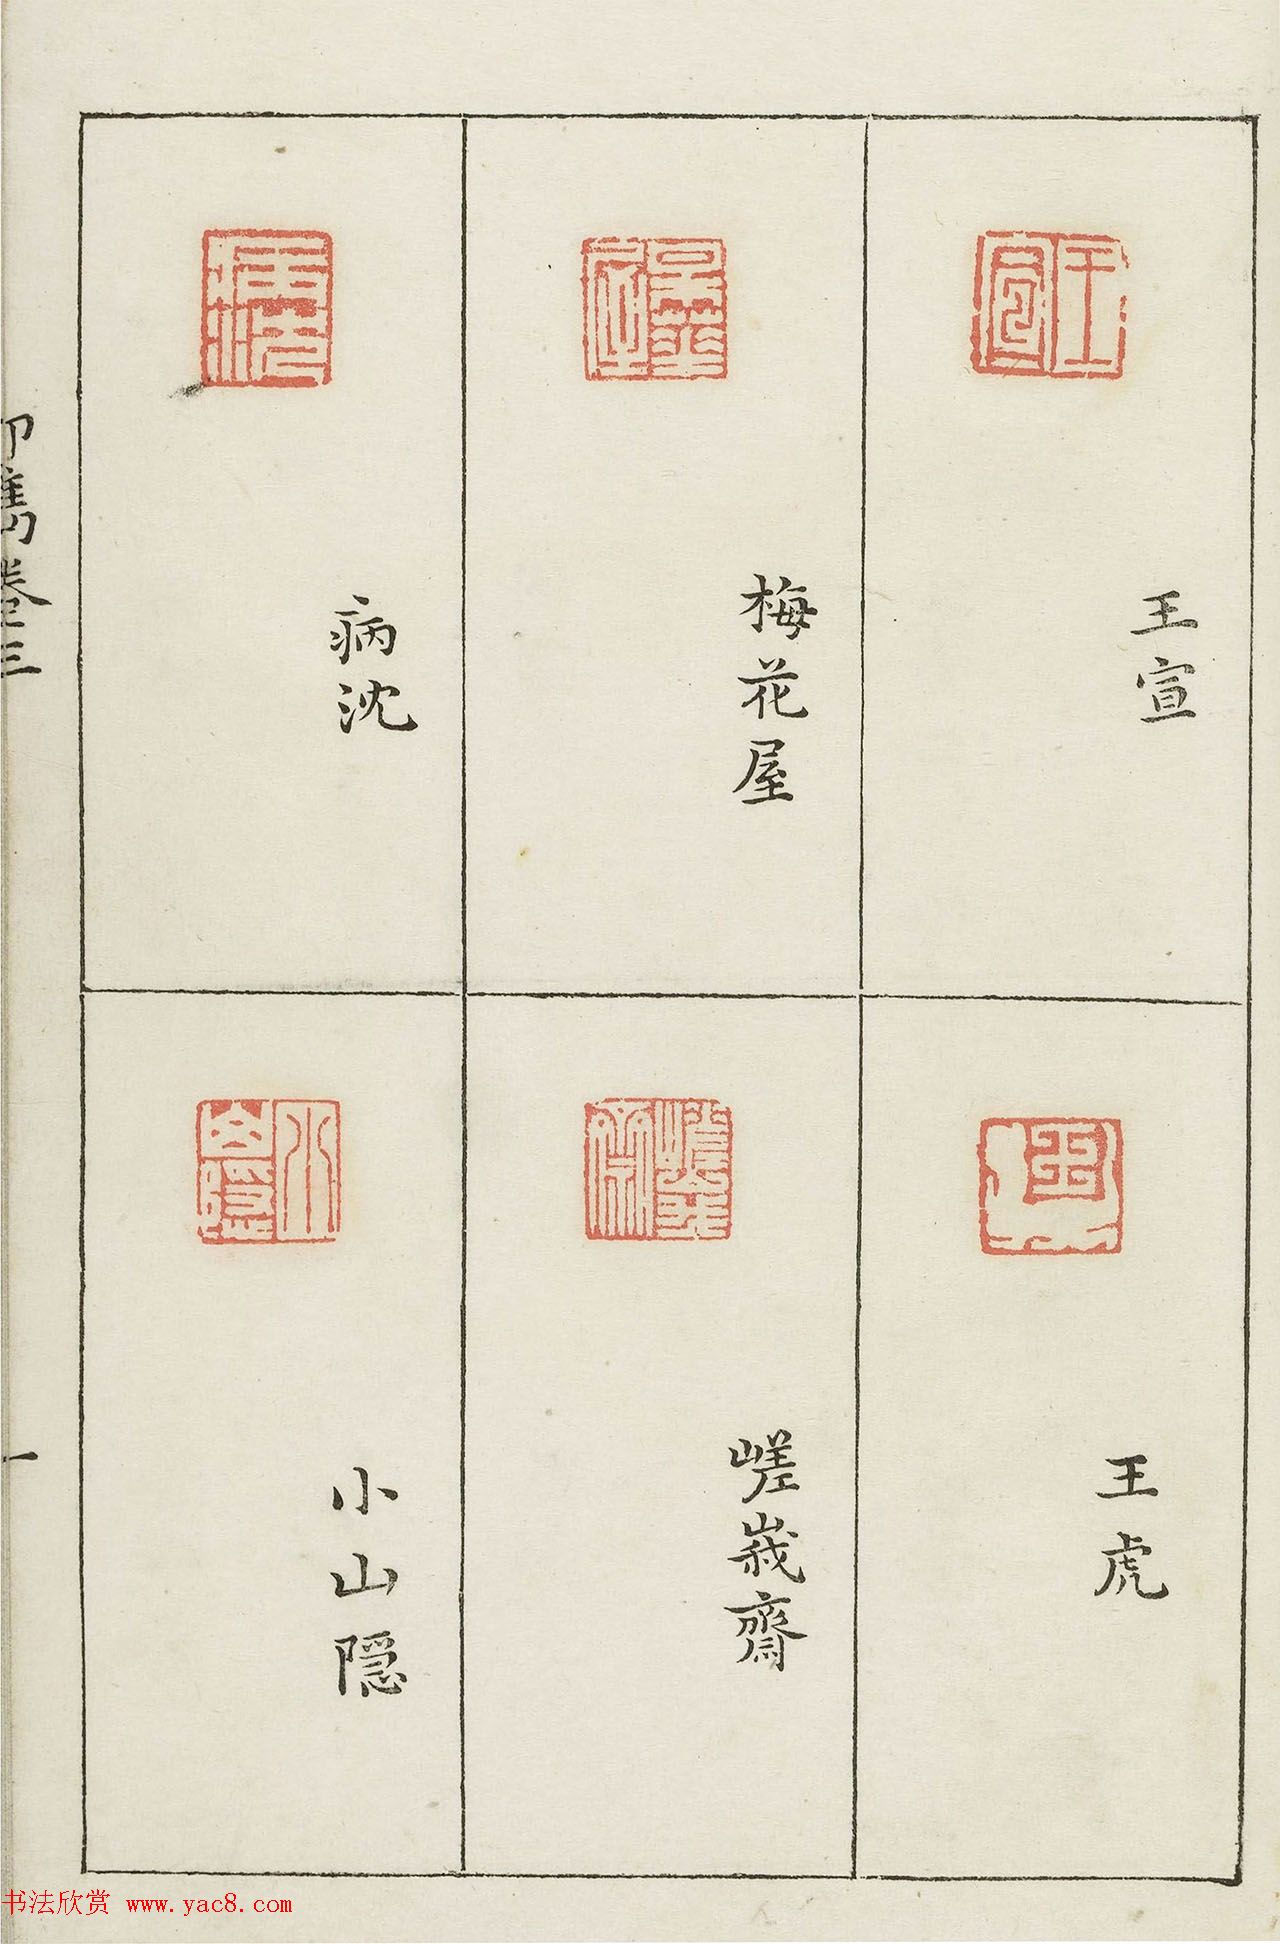 王宣
王虎
梅花屋
嵯峩齋
病沈
小山隠
印雋卷三
一
书法欣赏 www.yac8.com